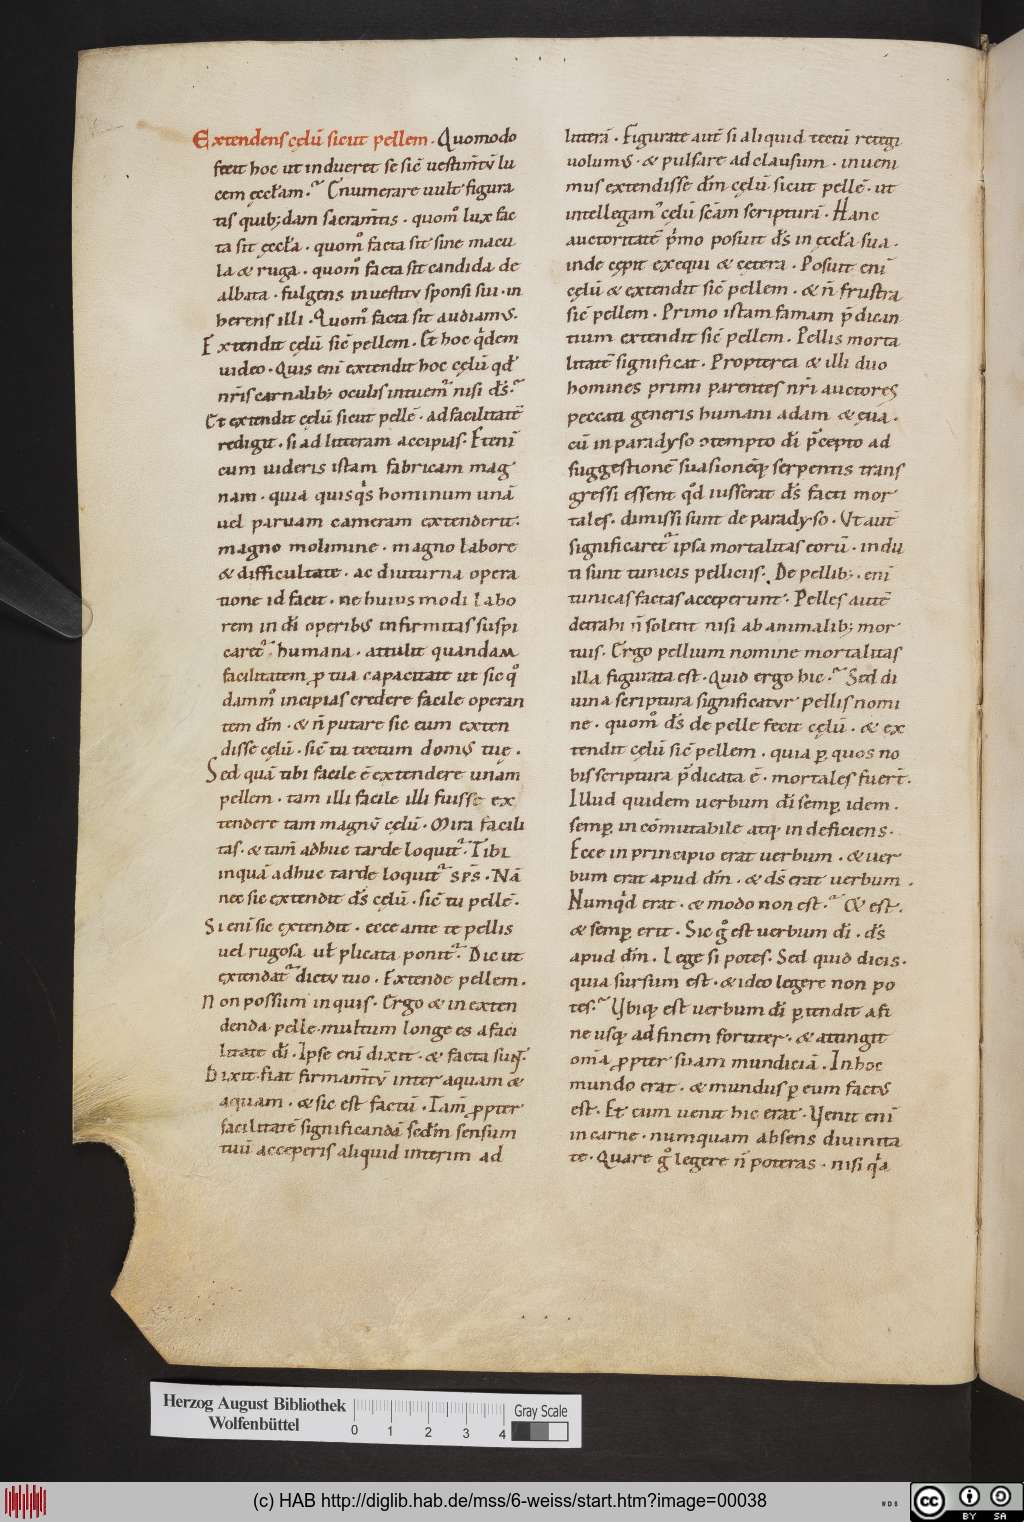 Extendens cęlū sicut pellem. Quomodo
fecit hoc ut indueret se sic̄ uestim̄tū lu
cem ęccłam. Enumerare uult figura
tis quib; dam sacram̄tis. quom̊ lux fac
ta sit ęccła. quom̊ facta sit sine macu
la & ruga. quom̊ facta sit candida de
albata. fulgens in uestitu sponsi sui. in
herens illi. Quom̊ facta sit audiamus.
Extendit cęlū sic̄ pellem. Et hoc q̇dem
uideo. Quis eni extendit hoc cęlū qđ
nr̄is carnalib; oculis intuem̄ nisi ds̄.
Et extendit cęlū sicut pellē. ad facilitatē
redigit. si ad litteram accipias. Etenī
cum uideris istam fabricam mag
nam. quia quisq̇s hominum unā
uel paruam cameram extenderit.
magno molimine. magno labore
& difficultate. ac diuturna opera
tione id facit. ne huius modi labo
rem in dī operibus infirmitas suspi
caret humana. attulit quandam
facilitatem p tua capacitate ut sic q̊
damm̊ incipias credere facile operan
tem dm̄. & n̄ putare sic eum exten
disse cęlū. sic̄ tu tectum domus tuę.
Sed quā tibi facile ē extendere unam
pellem. tam illi facile illi fuisse ex
tendere tam magnū cęlū. Mira facili
tas. & tam̄ adhuc tarde loquit̄. Tibi
inquā adhuc tarde loquit̄ sp̄s. Nā
nec sic extendit ds̄ cęlū. sic̄ tu pellē.
Si enī sic extendit. ecce ante te pellis
uel rugosa uł plicata ponit̄. Dic ut
extendat̄ dictu tuo. Extende pellem.
Non possum inquis. Ergo & in exten
denda pelle. multum longe es a faci
litate dī. Ipse enī dixit. & facta sunt.
Dixit. fiat firmam̄tū inter aquam &
aquam. & sic est factū. Tam̄ ppter
facilitatē significandā sed̄m sensum
tuū acceperis aliquid interim ad
litterā. Figurate aut̄ si aliquid tectū retegi
uolumus. & pulsare ad clausum. inueni
mus extendisse dm̄ cęlū sicut pellē. ut
intellegam̊ cęlū sc̄am scripturā. Hanc
auctoritatē pmo posuit ds̄ in ęccła sua.
inde cępit exequi & cętera. Posuit enī
cęlū & extendit sic̄ pellem. & n̄ frustra
sic̄ pellem. Primo istam famam p̄dican
tium extendit sic̄ pellem. Pellis morta
litatē significat. Propterea & illi duo
homines primi parentes nr̄i auctores
peccati generis humani adam & ęua.
cū in paradyso ɔtempto dī p̄cepto ad
suggestionē suasionēq; serpentis trans
gressi essent q̊d iusserat ds̄ facti mor
tales. dimissi sunt de paradyso. Ut aut̄
significaret̄ ipsa mortalitas eorū. indu
ti sunt tunicis pelliciis. De pellib;. enī
tunicas factas acceperunt. Pelles autē
detrahi n̄ solent nisi ab animalib; mor
tuis. Ergo pellium nomine mortalitas
illa figurata est. Quid ergo hic. Sed di
uina scriptura significatur pellis nomi
ne. quom̊ ds̄ de pelle fecit cęlū. & ex
tendit cęlū sic̄ pellem. quia p quos no
bis scriptura p̄dicata ē. mortales fuer̄t.
Illud quidem uerbum dī semp idem.
semp incōmutabile atq; indeficiens.
Ecce in principio erat uerbum. & uer
bum erat apud dm̄. & ds̄ erat uerbum.
Numq̇d erat. & modo non est. & est.
& semp erit. Sic g̊ est uerbum dī. ds̄
apud dm̄. Lege si potes. Sed quid dicis.
quia sursum est. & ideo legere non po
tes. Ubiq; est uerbum dī ptendit a fi
ne usq; ad finem fortiter. & attingit
om̄ia ppter suam mundiciā. In hoc
mundo erat. & mundus p eum factus
est. Et cum uenit hic erat. Uenit enī
in carne. numquam absens diuinita
te. Quare g̊ legere n̄ poteras. nisi q̇a
Herzog August Bibliothek
Wolfenbüttel
0 1 2 3 4
Gray Scale
(c) HAB http://diglib.hab.de/mss/6-weiss/start.htm?image=00038
WDB
cc BY SA